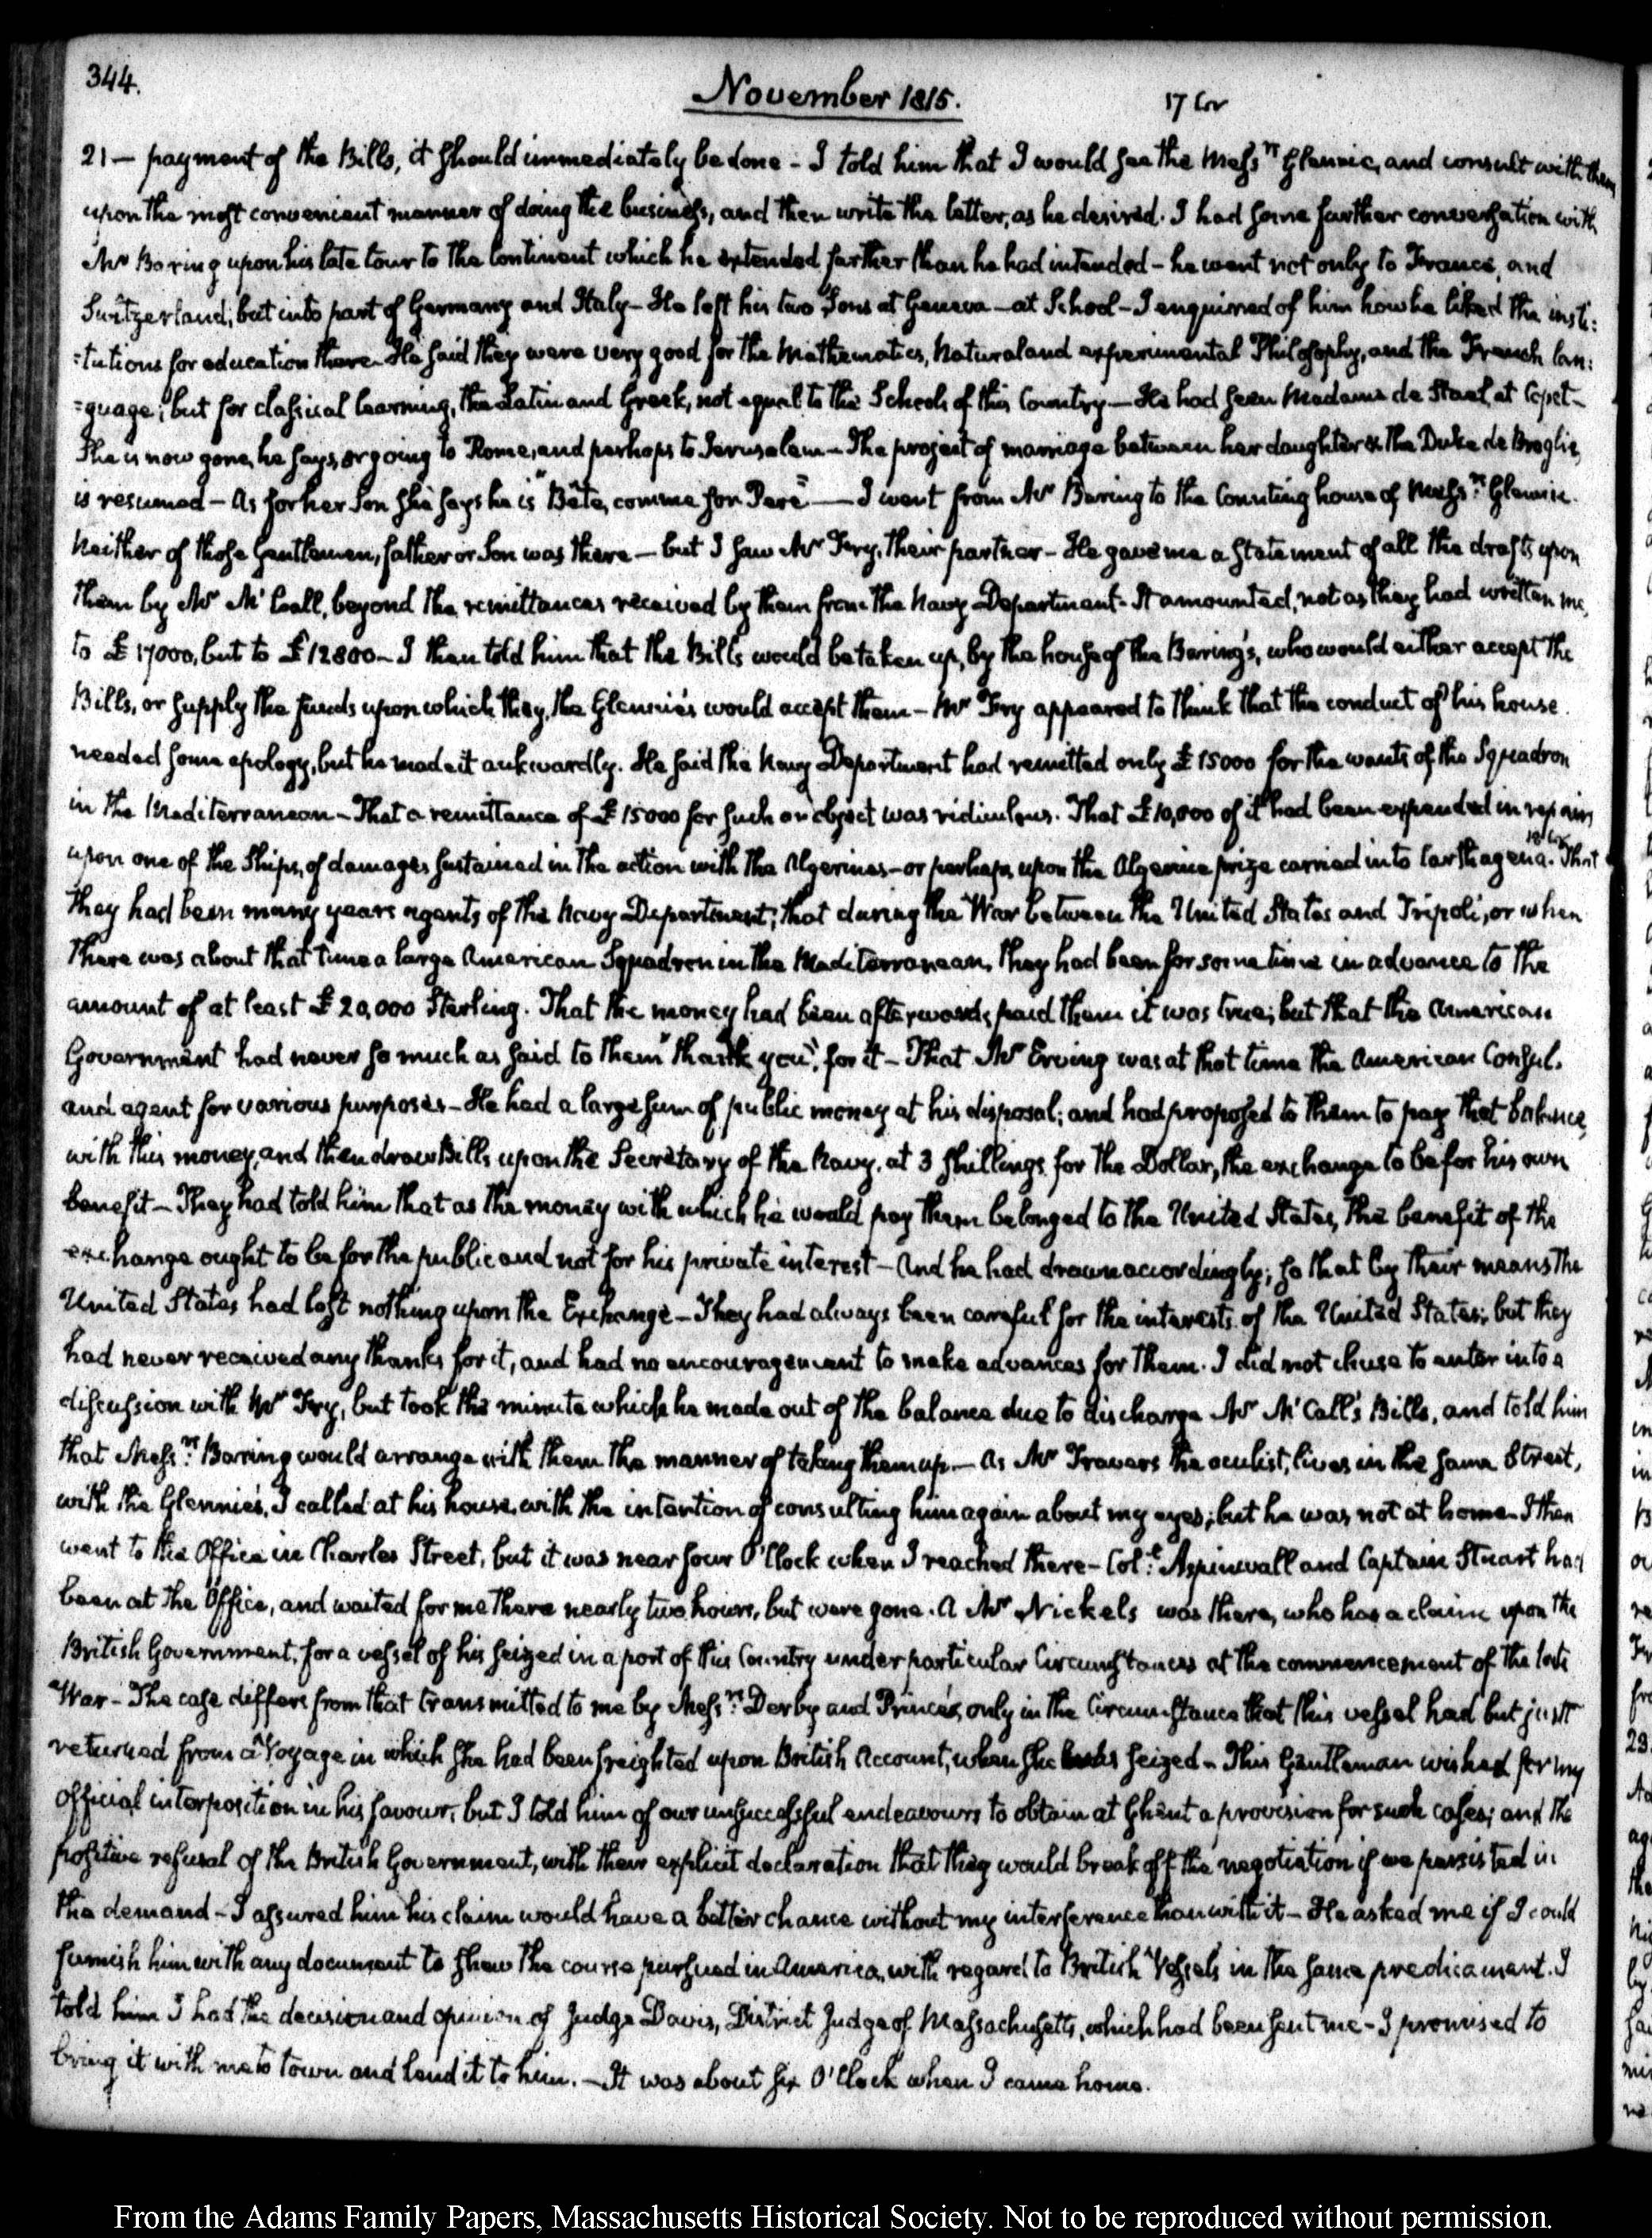 344.
November 1815.
17 Gr
21 — payment of the Bills, it should immediately be done - I told him that I would see the Messrs Glennie, and consult with them
upon the most convenient manner of doing the business, and then write the letter, as he desired. I had some further conversation with
Mr Baring upon his late tour to the Continent which he extended farther than he had intended - he went not only to France, and
Switzerland; but into part of Germany and Italy - He left his two Sons at Geneva - at School - I enquired of him how he liked the insti:
:tutions for education there. He said they were very good for the Mathematics, Natural and experimental Philosophy, and the French lan:
:guage; but for classical learning, the Latin and Greek, not equal to the Schools of this Country - He had seen Madame de Stael, at Copet -
She is now gone, he says, or going to Rome, and perhaps to Jerusalem - The project of marriage between her daughter & the Duke de Broglie,
is resumed - As for her Son she says he is "Bête, comme son Pere" — I went from Mr Baring to the Counting house of Messrs Glennie.
Neither of those Gentlemen, father or Son was there - but I saw Mr Fry, their partner - He gave me a statement of all the drafts upon
them by Mr McCall, beyond the remittances received by them from the Navy Department - It amounted, not as they had written me,
to £17000, but to £12800 - I then told him that the Bills would be taken up, by the house of the Baring's, who would either accept the
Bills, or supply the funds upon which they, the Glennie's would accept them - Mr Fry appeared to think that the conduct of his house
needed some apology, but he made it aukwardly. He said the Navy Department had remitted only £15000 for the wants of the Squadron
in the Mediterranean - That a remittance of £15000 for such an object was ridiculous. That £10,000 of it had been expended in repairs
upon one of the Ships, of damages sustained in the action with the Algerines - or perhaps upon the Algerine prize carried into Carthagena. That
they had been many years agents of the Navy Department; that during the War between the United States and Tripoli, or when
there was about that time a large American Squadron in the Mediterranean, they had been for some time in advance to the
amount of at least £20,000 Sterling. That the money had been afterwards paid them it was true; but that the American
Government had never so much as said to them "thank you", for it - That Mr Erving was at that time the American Consul.
and agent for various purposes - He had a large sum of public money at his disposal; and had proposed to them to pay that balance,
with this money, and then draw Bills upon the Secretary of the Navy, at 3 shillings for the Dollar, the exchange to be for his own
benefit - They had told him that as the money with which he would pay them belonged to the United States, the benefit of the
exchange ought to be for the public and not for his private interest - And he had drawn accordingly; so that by their means the
United States had lost nothing upon the Exchange - They had always been careful for the interests of the United States; but they
had never received any thanks for it, and had no encouragement to make advances for them. I did not chuse to enter into a
discussion with Mr Fry, but took the minute which he made out of the balance due to discharge Mr McCall's Bills, and told him
that Messrs Baring would arrange with them the manner of taking them up. - As Mr Travers the oculist, lives in the same Street,
with the Glennie's, I called at his house, with the intention of consulting him again about my eyes; but he was not at home - I then
went to the Office in Charles Street, but it was near four O'Clock when I reached there - Col: Aspinwall and Captain Stuart had
been at the Office, and waited for me there nearly two hours, but were gone. A Mr Nickels was there, who has a claim upon the
British Government, for a vessel of his seized in a port of this Country under particular Circumstances at the commencement of the late
War - The case differs from that transmitted to me by Messrs Derby and Prince's, only in the Circumstance that this vessel had but just
returned from a Voyage in which she had been freighted upon British Account, when she was seized - This Gentleman wished for my
official interposition in his favour; but I told him of our unsuccessful endeavours to obtain at Ghent a provision for such cases; and the
positive refusal of the British Government, with their explicit declaration that they would break off the negotiation if we persisted in
the demand - I assured him his claim would have a better chance without my interference than with it - He asked me if I could
furnish him with any document to shew the course pursued in America, with regard to British Vessels in the same predicament. I
told him I had the decision and opinion of Judge Davis, District Judge of Massachusetts, which had been sent me - I promised to
bring it with me to town and lend it to him. - It was about six O'Clock when I came home.
From the Adams Family Papers, Massachusetts Historical Society. Not to be reproduced without permission.